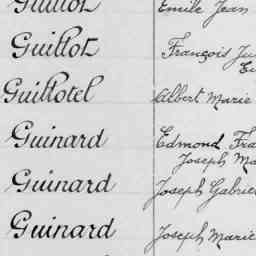 Guillot Emile Jean
Guillot François Ju
Guillotel Albert Marie
Guinard Edmond Fra
Joseph Ma
Guinard Joseph Gabrie
Guinard Joseph Marie